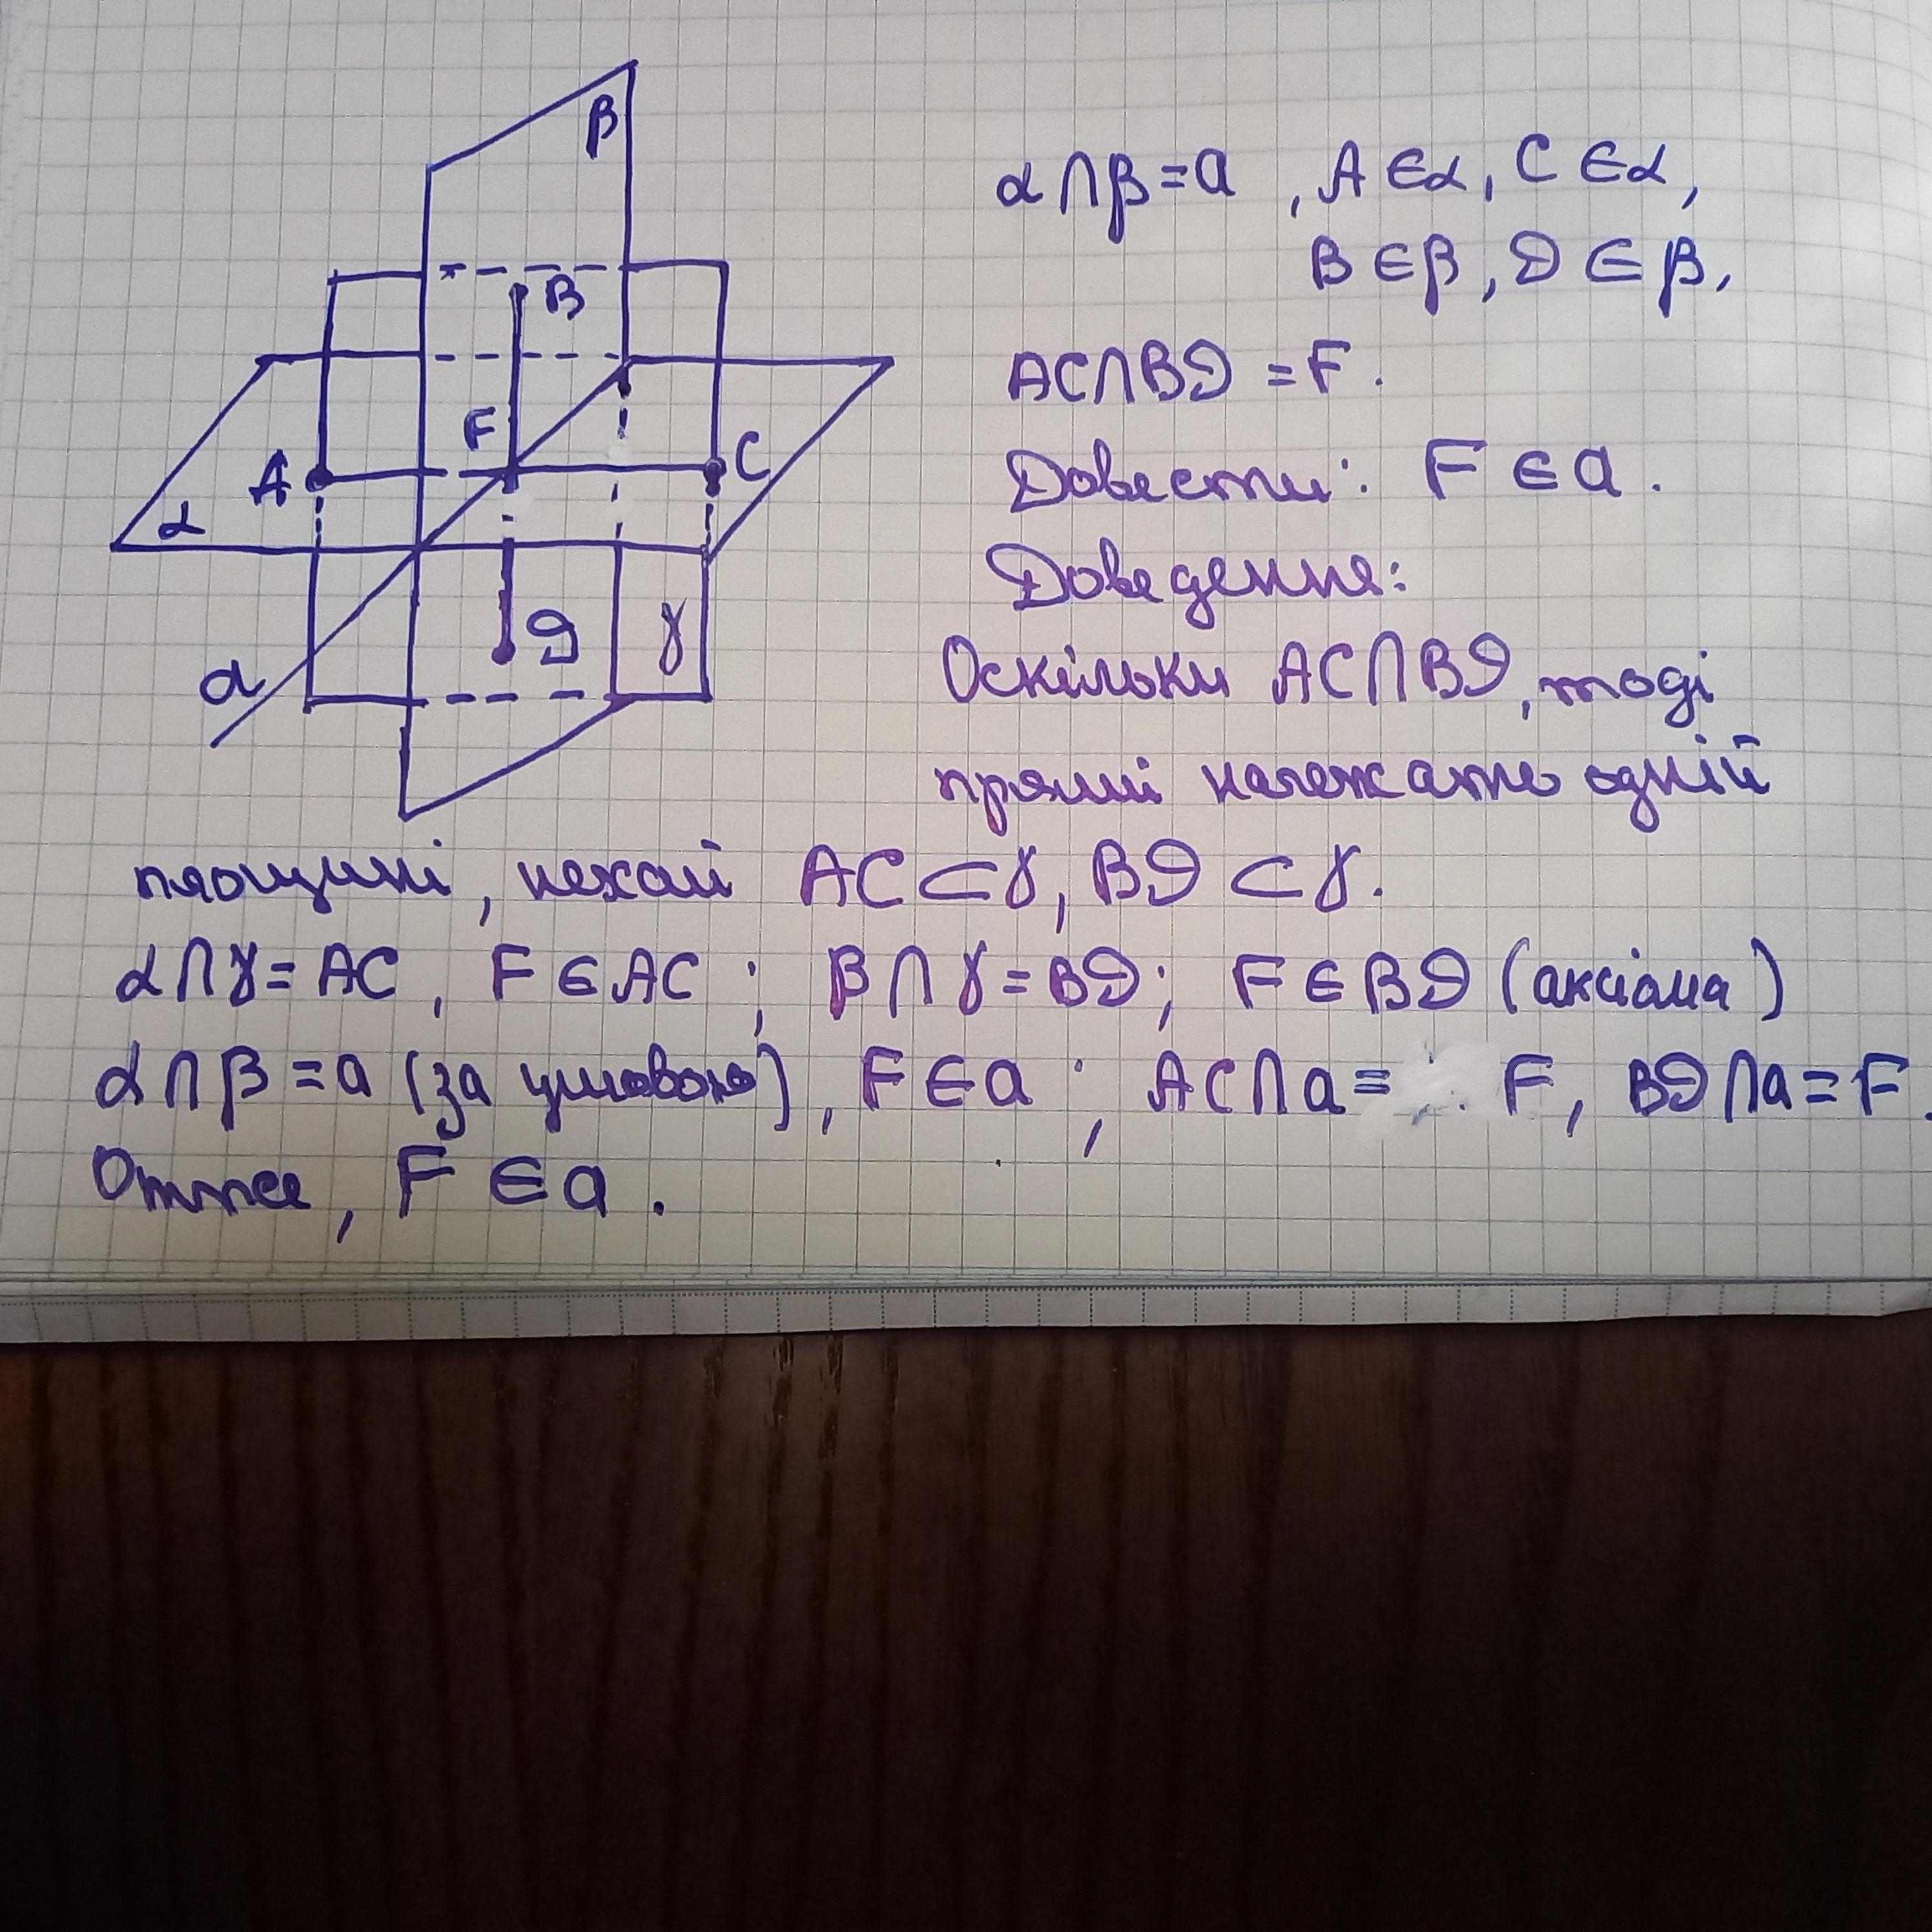 β
B
F
A
C
α
D
γ
a
α∩β=a, A∈α, C∈α,
B∈β, D∈β,
AC∩BD=F.
Довести: F∈a.
Доведення:
Оскільки AC∩BD, тоді
прямі належать одній
площині, нехай AC⊂γ, BD⊂γ.
α∩γ=AC, F∈AC; β∩γ=BD; F∈BD (аксіома)
α∩β=a (за умовою), F∈a; AC∩a= F, BD∩a=F.
Отже, F∈a.